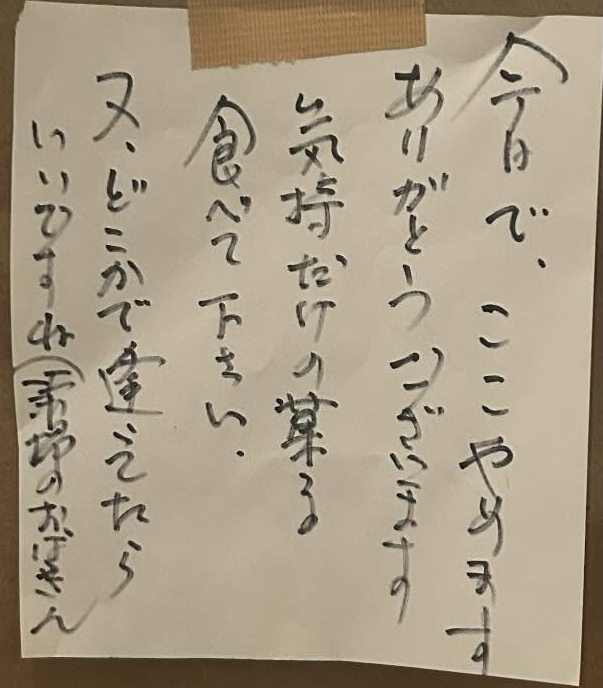 今日で、ここやめます
ありがとうございます
気持だけの菓子
食べて下さい.
又、どこかで逢えたら
いいですね(のおばさん